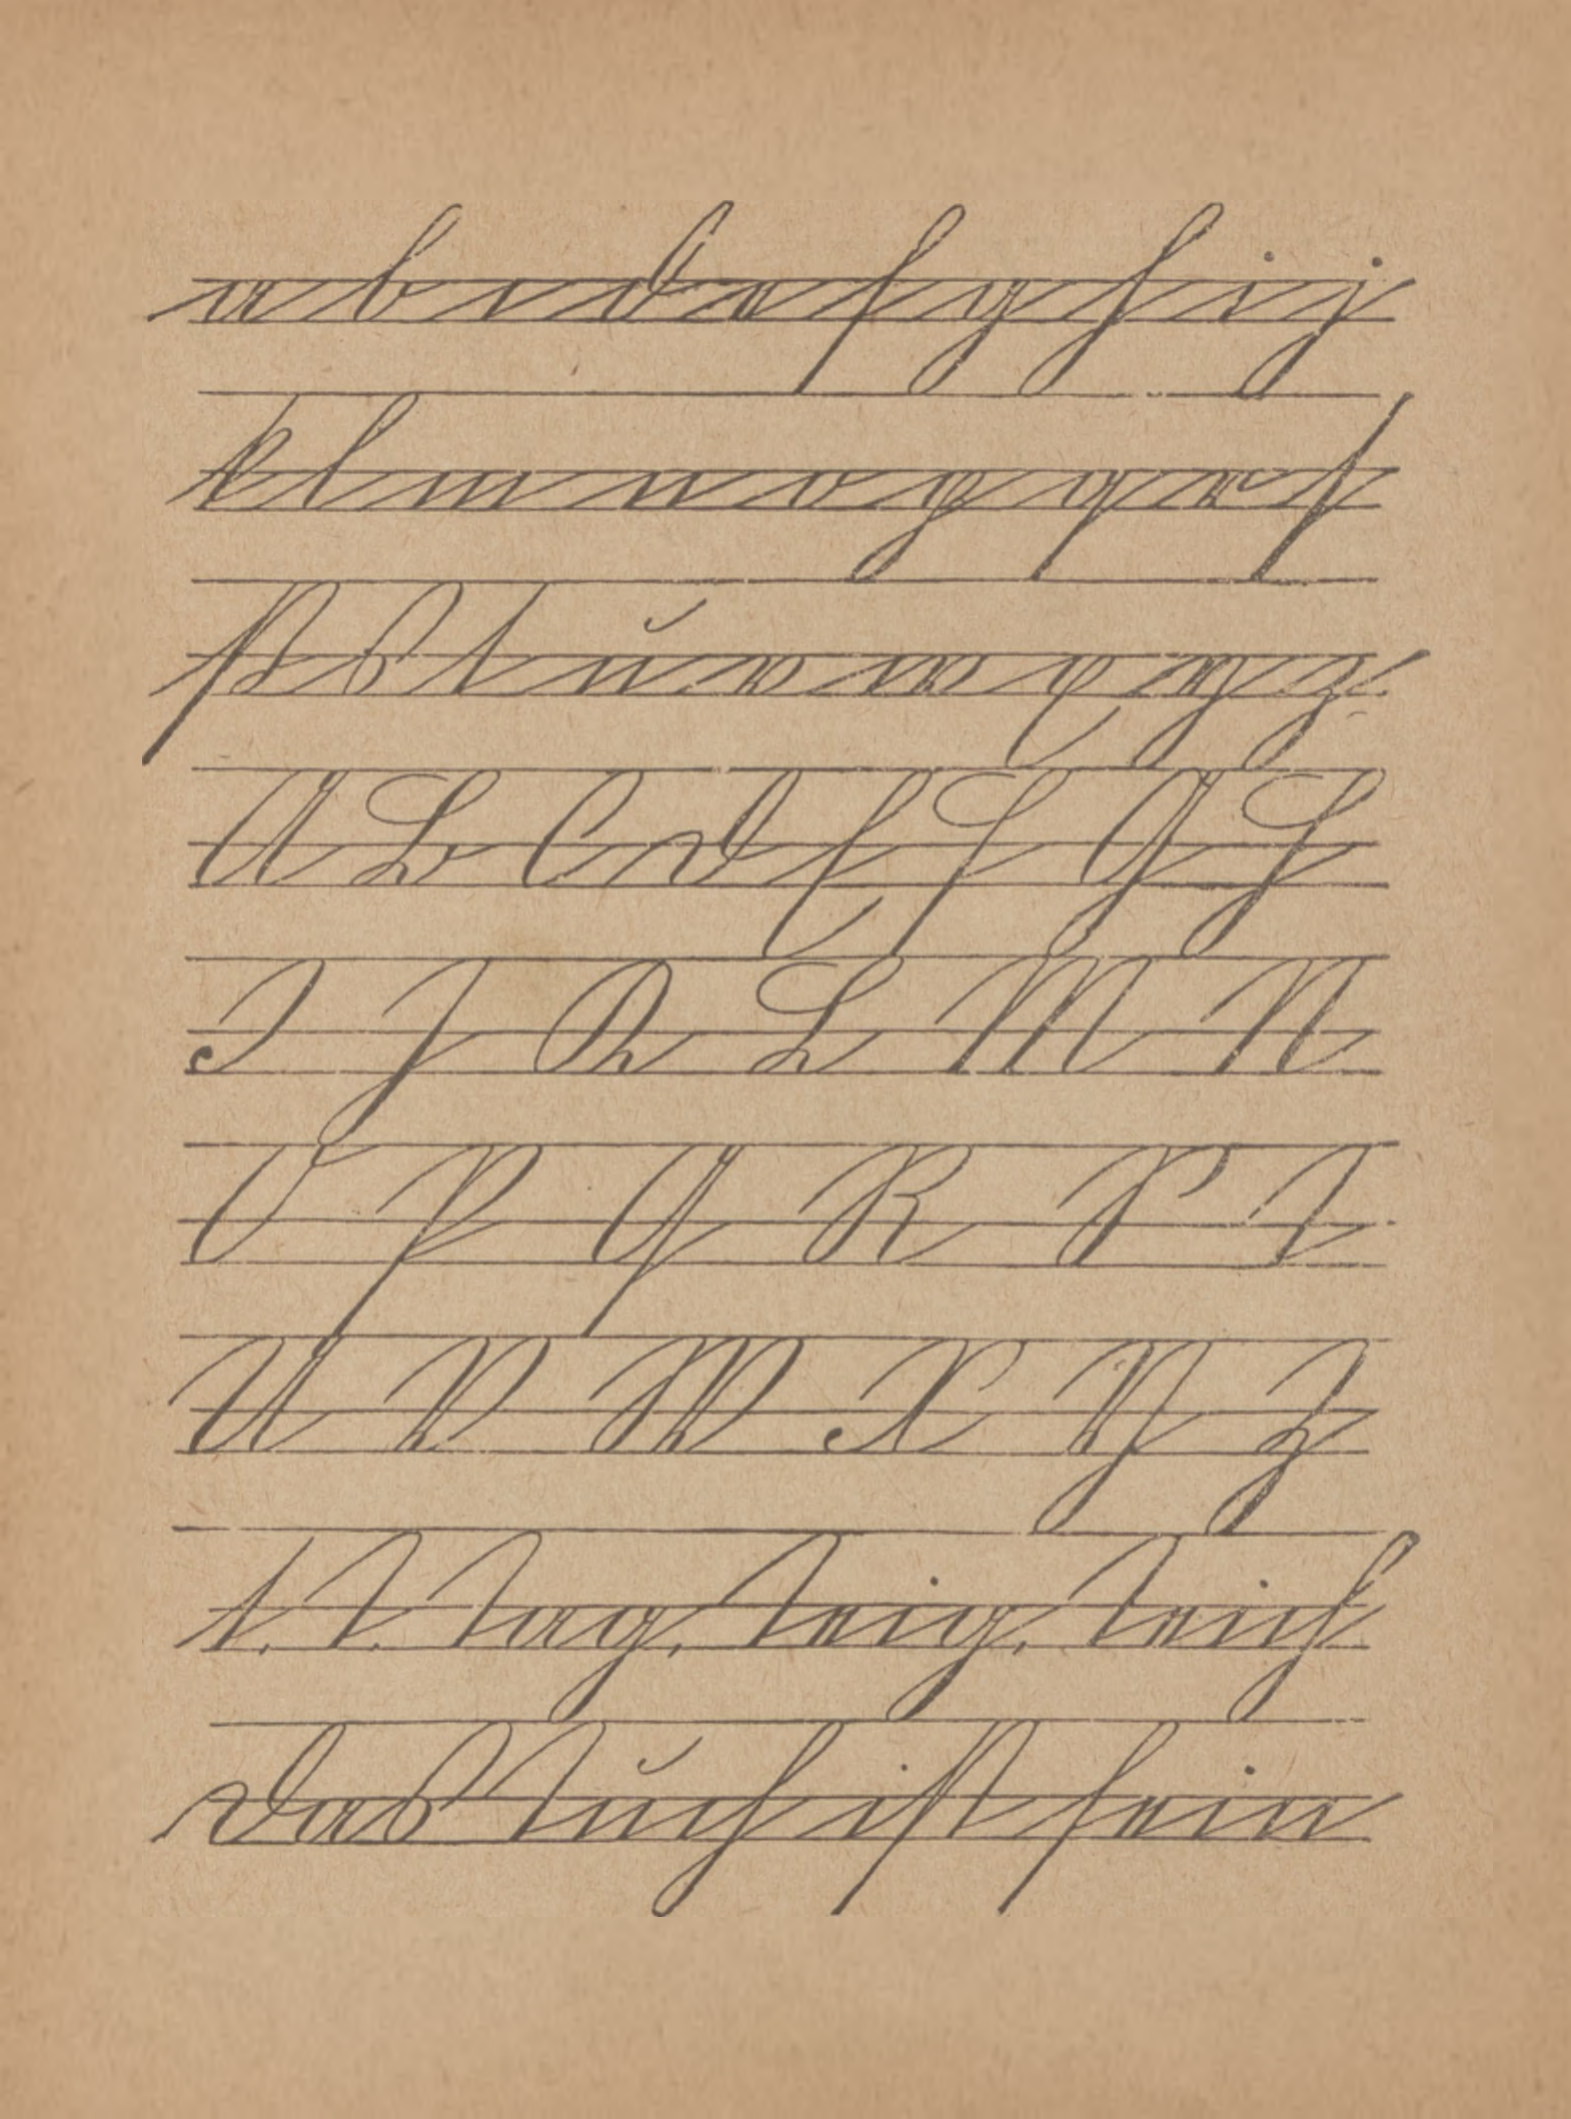 a b c d e f g h i j
k l m n o p q r ſ
ß s t u v w x y z
A B C D E F G H
I J K L M N
O P Q R S T
U V W X Y Z
t. T. Tag, Teig, Teich
Das Tuch iſt fein